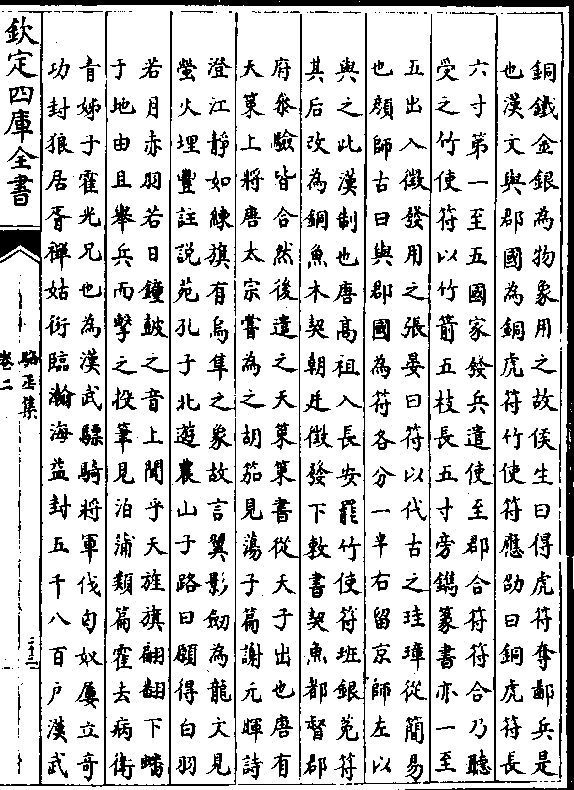 銅鐵金銀為物象用之故侯生曰得虎符奪鄙兵是
也漢文與郡國為銅虎符竹使符應劭曰銅虎符長
六寸第一至五國家發兵遣使至郡合符符合乃聽
受之竹使符以竹箭五枝長五寸旁鐫篆書亦一至
五出入徵發用之張晏曰符以代古之珪璋從簡易
也顔師古曰與郡國為符各分一半右留京師左以
與之此漢制也唐髙祖入長安罷竹使符班銀菟符
其后改為銅魚木契朝廷徵發下敕書契魚都督郡
府參驗皆合然後遣之天䇿䇿書從天子出也唐有
天䇿上將唐太宗嘗為之胡笳見蕩子篇謝元暉詩
澄江靜如練旗有鳥隼之象故言翼影劒為龍文見
螢火埋豐註説苑孔子北遊農山子路曰願得白羽
若月赤羽若日鐘鼓之音上聞乎天旌旗翩翻下蟠
于地由且舉兵而擊之投筆見泊蒲類篇霍去病衛
青姊子霍光兄也為漢武驃騎將軍伐匈奴屢立奇
功封狼居胥禪姑衍臨瀚海益封五千八百戶漢武
欽定四庫全書
駱丞集
卷二